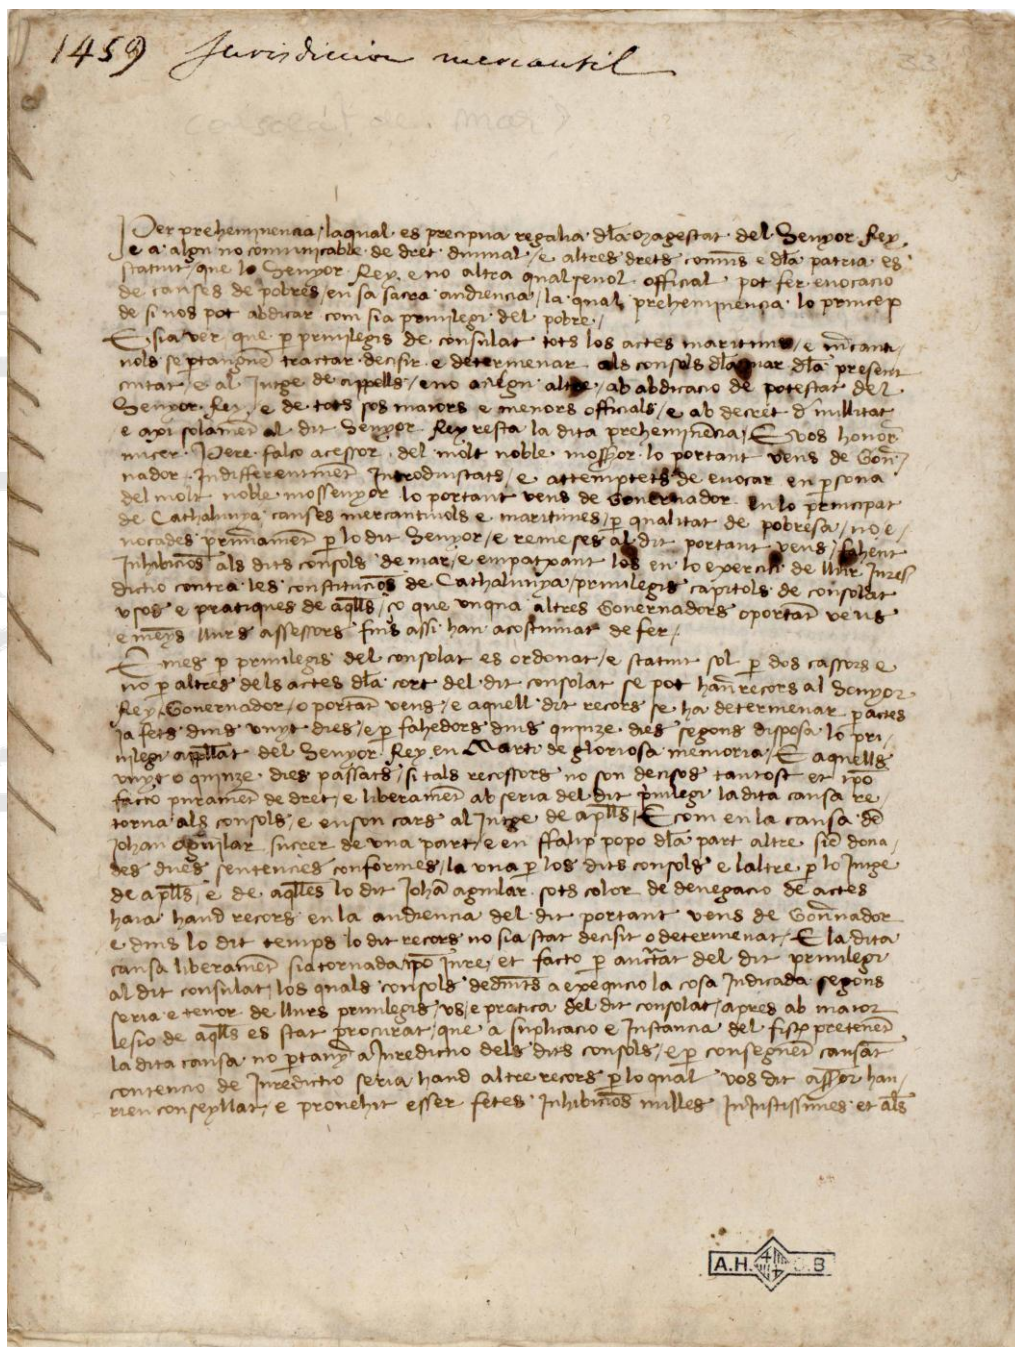 1459 Jurisdiccion mercantil
33
consolat de mar
Per preheminencia / laqual es precipua regalia dla magestat del Senyor Rey.
e a algu no comunicable de dret diuinal / e altres drets comuns e dla patria es
statuit / que lo Senyor Rey e no altra qualseuol official pot fer euocacio
de causes de pobres / en sa sacra audiencia / la qual preheminencia lo princep
de si nos pot abdicar com sia priuilegi del pobre /
E sia ver que p priuilegis de consulat tots los actes maritims / e mcanti /
uols se ptanguen tractar decisir e determenar als consols dla mar dla present
ciutat / e al Jutge de appells / e no a algu altre / ab abdicacio de potestat del
Senyor Rey / e de tots sos maiors e menors officials / e ab decret d nullitat
e axi solament al dit Senyor Rey resta la dita preheminencia / E vos honor
micer Pere falco acessor del molt noble mossor lo portant veus de Gou /
nador Indifferentment Introduistats / e attemptets de euocar en psona
del molt noble mossenyor lo portant veus de Gouernador en lo principat
de Cathalunya causes mercantiuols e maritimes / p qualitat de pobresa / no e /
uocades primament p lo dit Senyor / e remeses al dit portant veus / fahent
Inhibicios als dits consols de mar / e empatxant los en lo exercici de llur Juresl
dictio contra les constitucios de Cathalunya / priuilegis capitols de consolat
vsos e pratiques de aqlls / ço que vnqua altres Gouernadors oportat veus
e menys llurs assessors fins assi han acostumat de fer /
E mes p priuilegis del consolat es ordonat / e statuit sol p dos cassors e
no p altres dels actes dla cort del dit consolat se pot hauer recors al Senyor
Rey Gouernador / o portat veus / e aquell dit recors se ha determenar p actes
ja fets dins vuyt dies / e p fahedors dins quinze dies segons disposa lo pri /
uilegi apllat del Senyor Rey en Marti de gloriosa memoria / E aquells
vuyt o quinze dies passats / si tals recossors no son decisos tantost et ipo
facto purament de dret / e liberament ab seria del dit priuilegi la dita causa re /
torna als consols / e en son cars al Jutge de aplls / E com en la causa de
Johan aguilar sucrer de vna part / e en ffalip popo dla part altre sien dona /
des dues sentencies conformes / la vna p los dits consols e laltre p lo Jutge
de aplls / e de aqlles lo dit Johan aguilar sots color de denegacio de actes
haia haud recors en la audiencia del dit portant veus de Gouernador
e dins lo dit temps lo dit recors no sia stat decisit o determenat / E la dita
causa liberament sia tornada ipo jure et facto p auctat del dit priuilegi
al dit consulat / los quals consols deduits a exequcio la cosa Judicada segons
seria e tenor de llurs priuilegis / vs / e pratica del dit consolat / apres ab maior
lesio de aqlls es stat procurat / que a suplicacio e Instancia del fisch pretenent
la dita causa no ptany a Juredictio dels dits consols / e p conseguent causat
contencio de Juredictio seria haud altre recors p lo qual vos dit assor hau /
rieu conseyllat / e prouehit esser fetes Inhibicios nulles InIustissimes et als
A.H. B